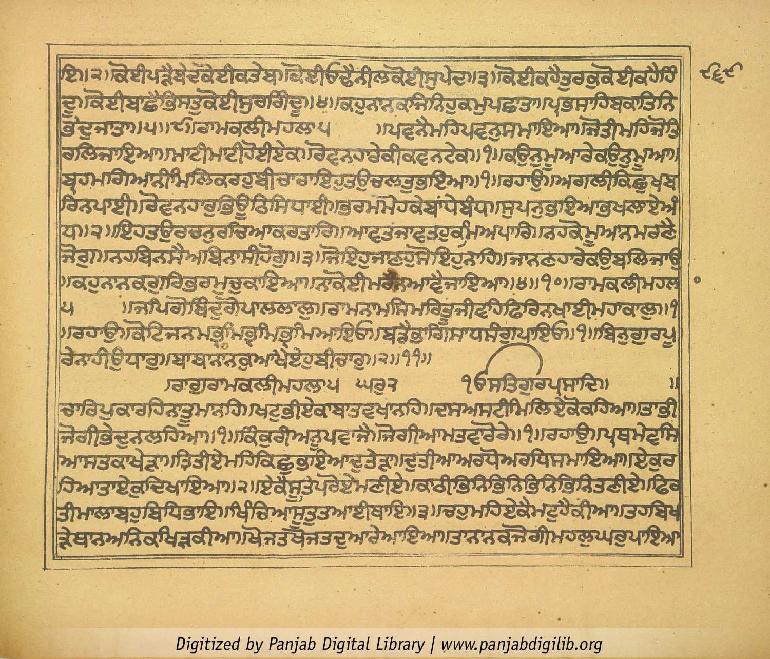 ੬੬੯
ਇ॥੨॥ਕੋਈਪੜੈਬੇਦਕੋਈਕਤੇਬ॥ਕੋਈਓਢੈਨੀਲਕੋਈਸੁਪੇਦ॥੩॥ਕੋਈਕਹੈਤੁਰਕੁਕੋਈਕਹੈਹਿੰ
ਦੂ॥ਕੋਈਬਾਛੈਭਿਸਤੁਕੋਈਸੁਰਗਿੰਦੂ॥੪॥ਕਹੁਨਾਨਕਜਿਨਿਹੁਕਮੁਪਛਾਤਾ॥ਪ੍ਰਭਸਾਹਿਬਕਾਤਿਨਿ
ਭੇਦੁਜਾਤਾ॥੫॥੯॥ਰਾਮਕਲੀਮਹਲਾ੫ ॥ਪਵਨੈਮਹਿਪਵਨੁਸਮਾਇਆ॥ਜੋਤੀਮਹਿਜੋਤਿ
ਰਲਿਜਾਇਆ॥ਮਾਟੀਮਾਟੀਹੋਈਏਕ॥ਰੋਵਨਹਾਰੇਕੀਕਵਨਟੇਕ॥੧॥ਕਉਨੁਮੂਆਰੇਕਉਨੁਮੂਆ॥
ਬ੍ਰਹਮਗਿਆਨੀਮਿਲਿਕਰਹੁਬੀਚਾਰਾਇਹੁਤਉਚਲਤੁਭਇਆ॥੧॥ਰਹਾਉ॥ਅਗਲੀਕਿਛੁਖਬ
ਰਿਨਪਾਈ॥ਰੋਵਨਹਾਰੁਭਿਊਠਿਸਿਧਾਈ॥ਭਰਮਮੋਹਕੇਬਾਂਧੇਬੰਧ॥ਸੁਪਨੁਭਇਆਭਖਲਾਏਅੰ
ਧ॥੨॥ਇਹੁਤਉਰਚਨੁਰਚਿਆਕਰਤਾਰਿ॥ਆਵਤਜਾਵਤਹੁਕਮਿਅਪਾਰਿ॥ਨਹਕੋਮੂਆਨਮਰਣੈ
ਜੋਗੁ॥ਨਹਬਿਨਸੈਅਬਿਨਾਸੀਹੋਗੁ॥੩॥ਜੋਇਹੁਜਾਣਹੁਸੋਇਹੁਨਾਹਿ॥ਜਾਨਣਹਾਰੇਕਉਬਲਿਜਾਉ
॥ਕਹੁਨਾਨਕਗੁਰਿਭਰਮੁਚੁਕਾਇਆ॥ਨਾਕੋਈਮਰੈਨਆਵੈਜਾਇਆ॥੪॥੧੦॥ਰਾਮਕਲੀਮਹਲਾ
੫ ॥ਜਪਿਗੋਬਿੰਦੁਗੋਪਾਲਲਾਲੁ॥ਰਾਮਨਾਮਸਿਮਰਿਤੂਜੀਵਹਿਫਿਰਿਨਖਾਈਮਹਾਕਾਲੁ॥੧
॥ਰਹਾਉ॥ਕੋਟਿਜਨਮਭ੍ਰਮਿਭ੍ਰਮਿਭ੍ਰਮਿਆਇਓ॥ਬਡੈਭਾਗਿਸਾਧਸੰਗੁਪਾਇਓ॥੧॥ਬਿਨੁਗੁਰਪੂ
ਰੇਨਾਹੀਉਧਾਰੁ॥ਬਾਬਾਨਾਨਕੁਆਖੈਏਹੁਬੀਚਾਰੁ॥੨॥੧੧॥
॥ਰਾਗੁਰਾਮਕਲੀਮਹਲਾ੫ ਘਰੁ੨ ੧ਓਸਤਿਗੁਰਪ੍ਰਸਾਦਿ॥ ॥
ਚਾਰਿਪੁਕਾਰਹਿਨਾਤੂਮਾਨਹਿ॥ਖਟੁਭੀਏਕਾਬਾਤਵਖਾਨਹਿ॥ਦਸਅਸਟੀਮਿਲਿਏਕੋਕਹਿਆ॥ਤਾਭੀ
ਜੋਗੀਭੇਦੁਨਲਹਿਆ॥੧॥ਕਿੰਕੁਰੀਅਨੂਪਵਾਜੈ॥ਜੋਗੀਆਮਤਵਾਰੋਰੇ॥੧॥ਰਹਾਉ॥ਪ੍ਰਥਮੇਵਸਿ
ਆਸਤਕਾਖੇੜਾ॥ਤ੍ਰਿਤੀਏਮਹਿਕਿਛੁਭਇਆਦੁਤੇੜਾ॥ਦੁਤੀਆਅਰਧੋਅਰਧਿਸਮਾਇਆ॥ਏਕੁਰ
ਹਿਆਤਾਏਕੁਦਿਖਾਇਆ॥੨॥ਏਕੈਸੂਤਿਪਰੋਏਮਣੀਏ॥ਗਾਠੀਭਿਨਿਭਿਨਿਭਿਨਿਭਿਨਿਤਣੀਏ॥ਫਿਰ
ਤੀਮਾਲਾਬਹੁਬਿਧਿਭਾਇ॥ਖਿੰਚਿਆਸੂਤੁਤਆਈਥਾਇ॥੩॥ਚਹੁਮਹਿਏਕੈਮਟੁਹੈਕੀਆ॥ਤਹਬਿਖ
ੜੇਥਾਨਅਨਿਕਖਿੜਕੀਆ॥ਖੋਜਤਖੋਜਤਦੁਆਰੇਆਇਆ॥ਤਾਨਾਨਕਜੋਗੀਮਹਲੁਘਰੁਪਾਇਆ
Digitized by Panjab Digital Library | www.panjabdigilib.org